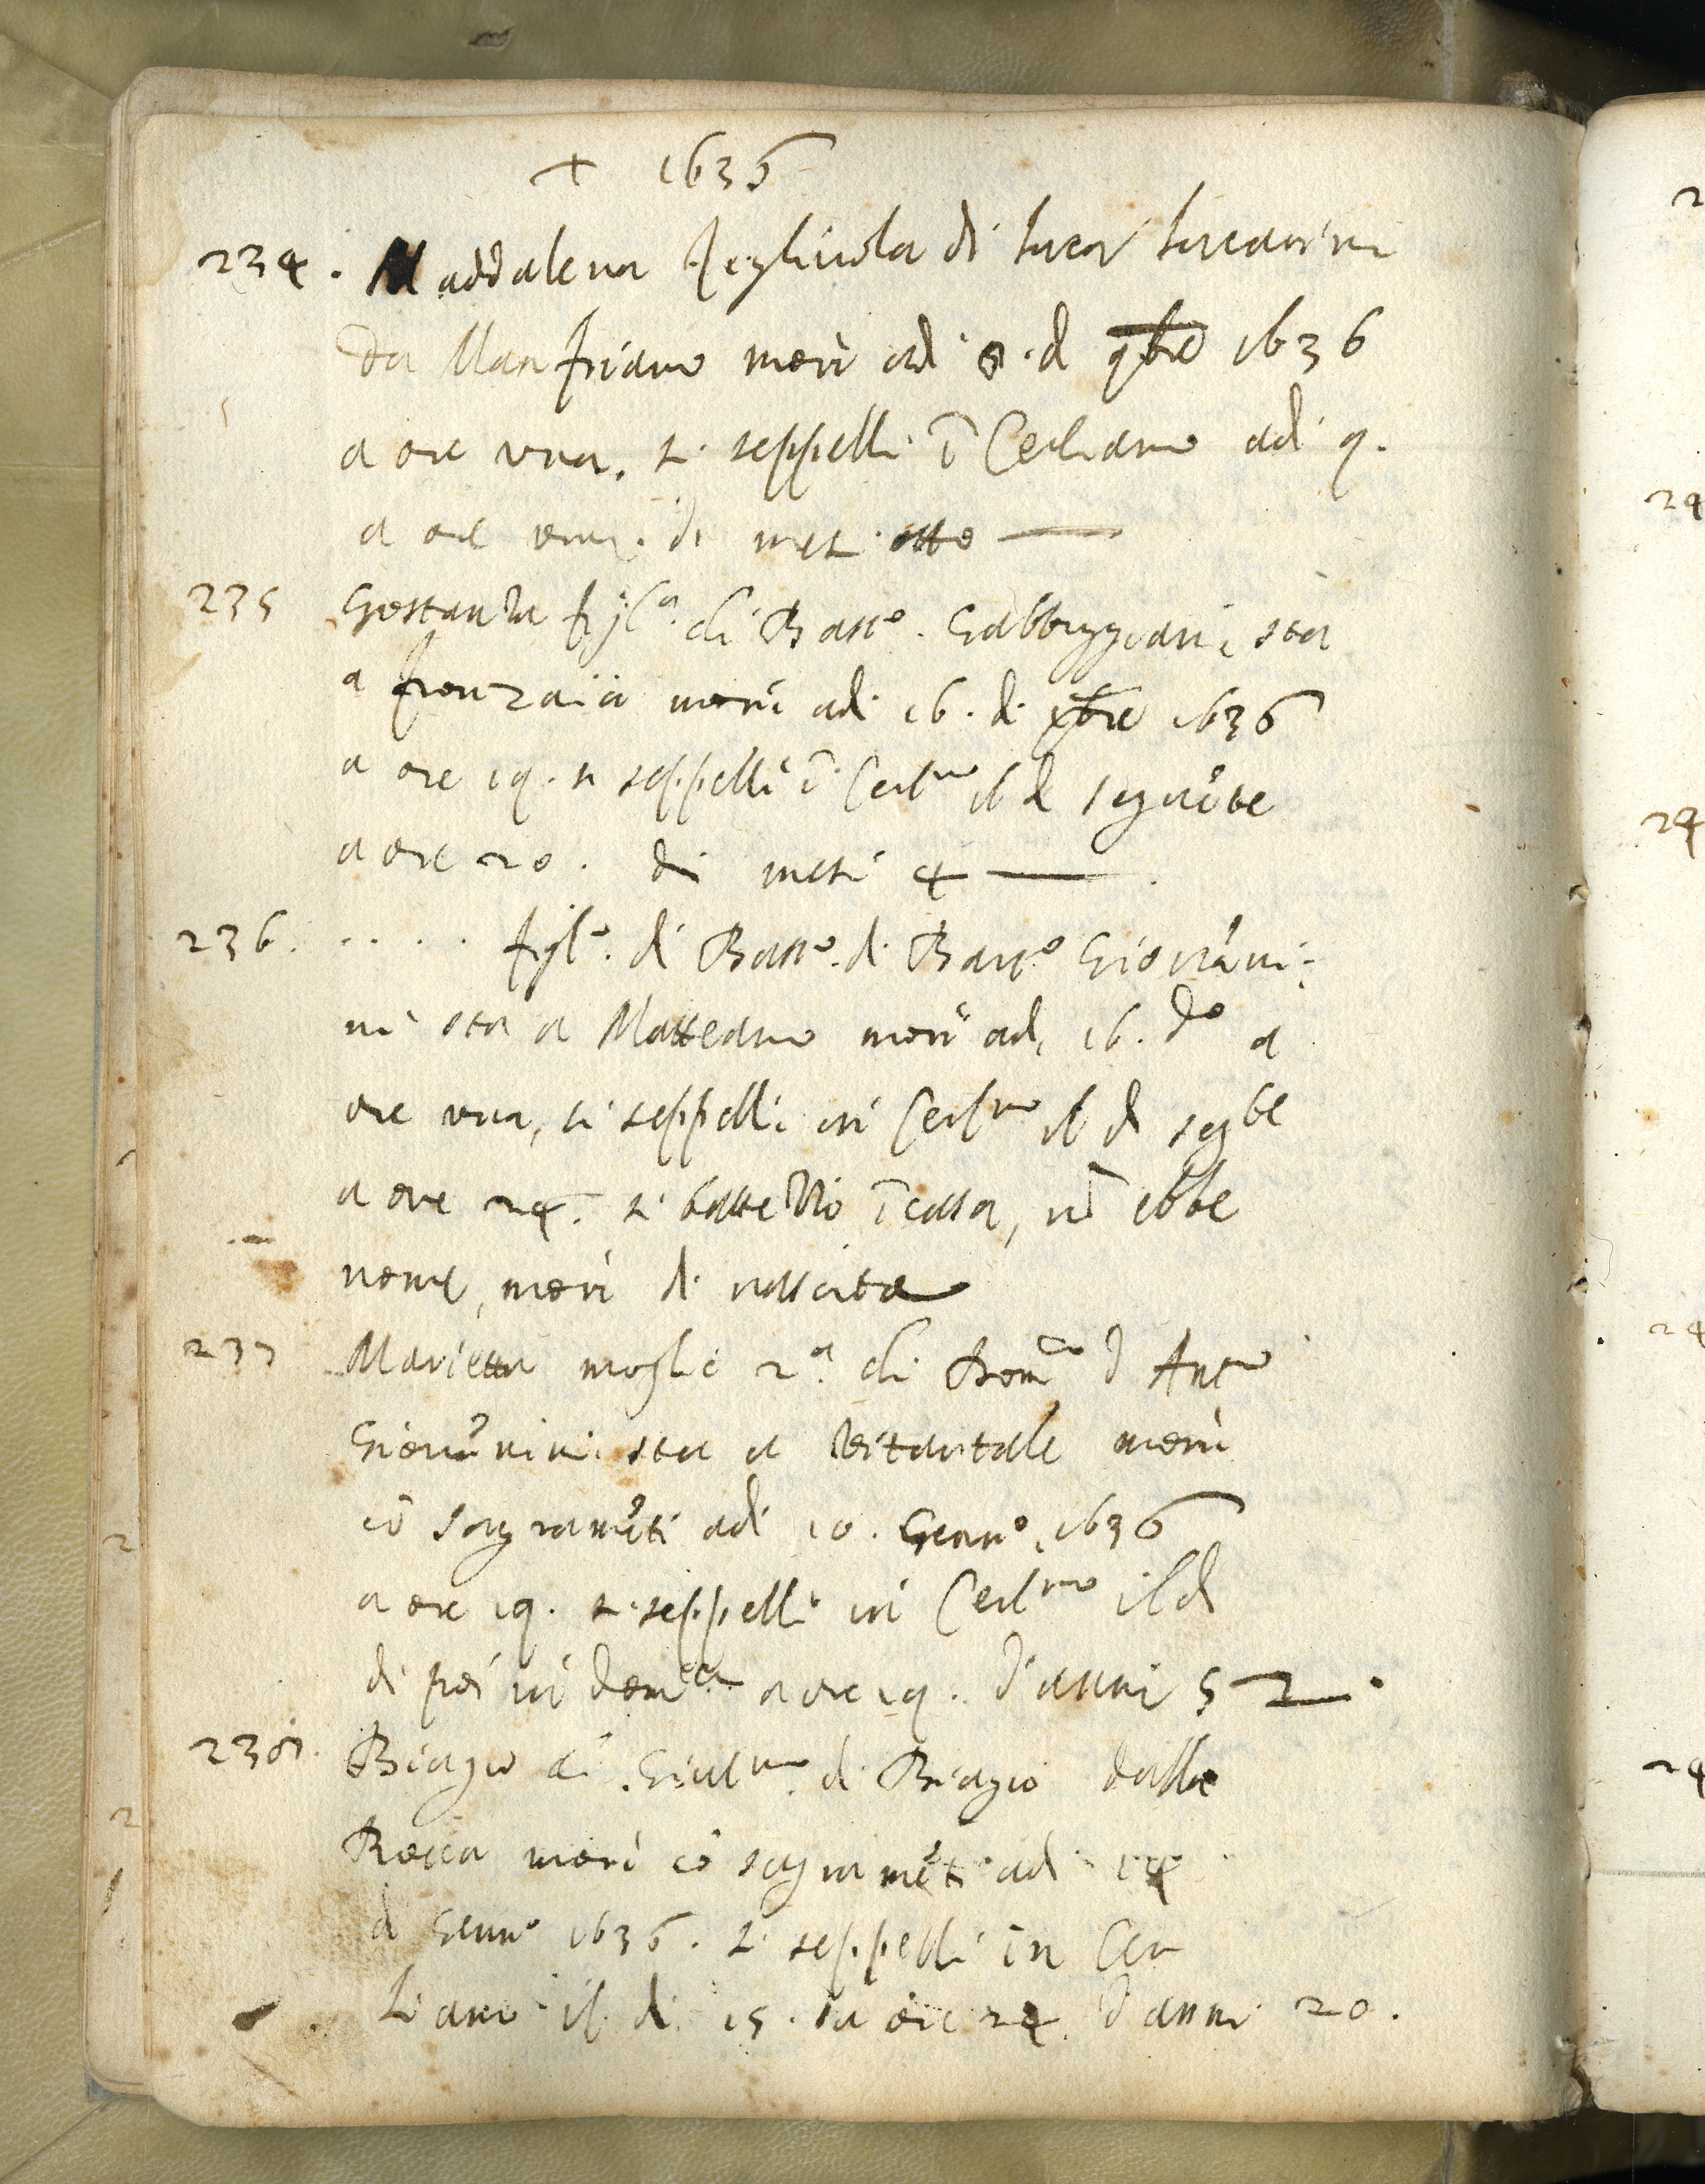 + 1636
234. Maddalena figliuola di Luca Lucarini
da Manfriano morì adi 8. d 9bre 1636
a ore una. si seppellì ī Cerliano adi 9.
a ore venti. di mesi otto
235 Gostanza figla. di Bastº. Gabbryggiani, sta
a fronzaia morì adi 16. di xbre 1636
a ore 19. si seppellì ī Cerlno il dì seguēte
a ore 20. di mesi 4
236. .... figlº. di Bastº. di Bartº Giovāni:
ni sta a Matteano morì adi 16. dº a
ore una, si seppellì in Cerlno il dì segte
a ore 24. si battezzò ī casa, nō ebbe
nome, morì di nascita
237 Marietta moglie 2a. di Domco d Antº
Giovānini sta a Vitartale morì
cō sagramēti adi 10. Gennº. 1636
a ore 19. si seppellì in Cerlno il dì
di poi in domca a ore 19. d'anni 52.
238. Biagio di Giulno. di Biagio dalla
Rocca morì cō sagramēti adi 14
d Gennº 1636. si seppellì in Cer
liano il dì 15. a ore 24. d'anni 20.
2
24
24
24
24
2
2